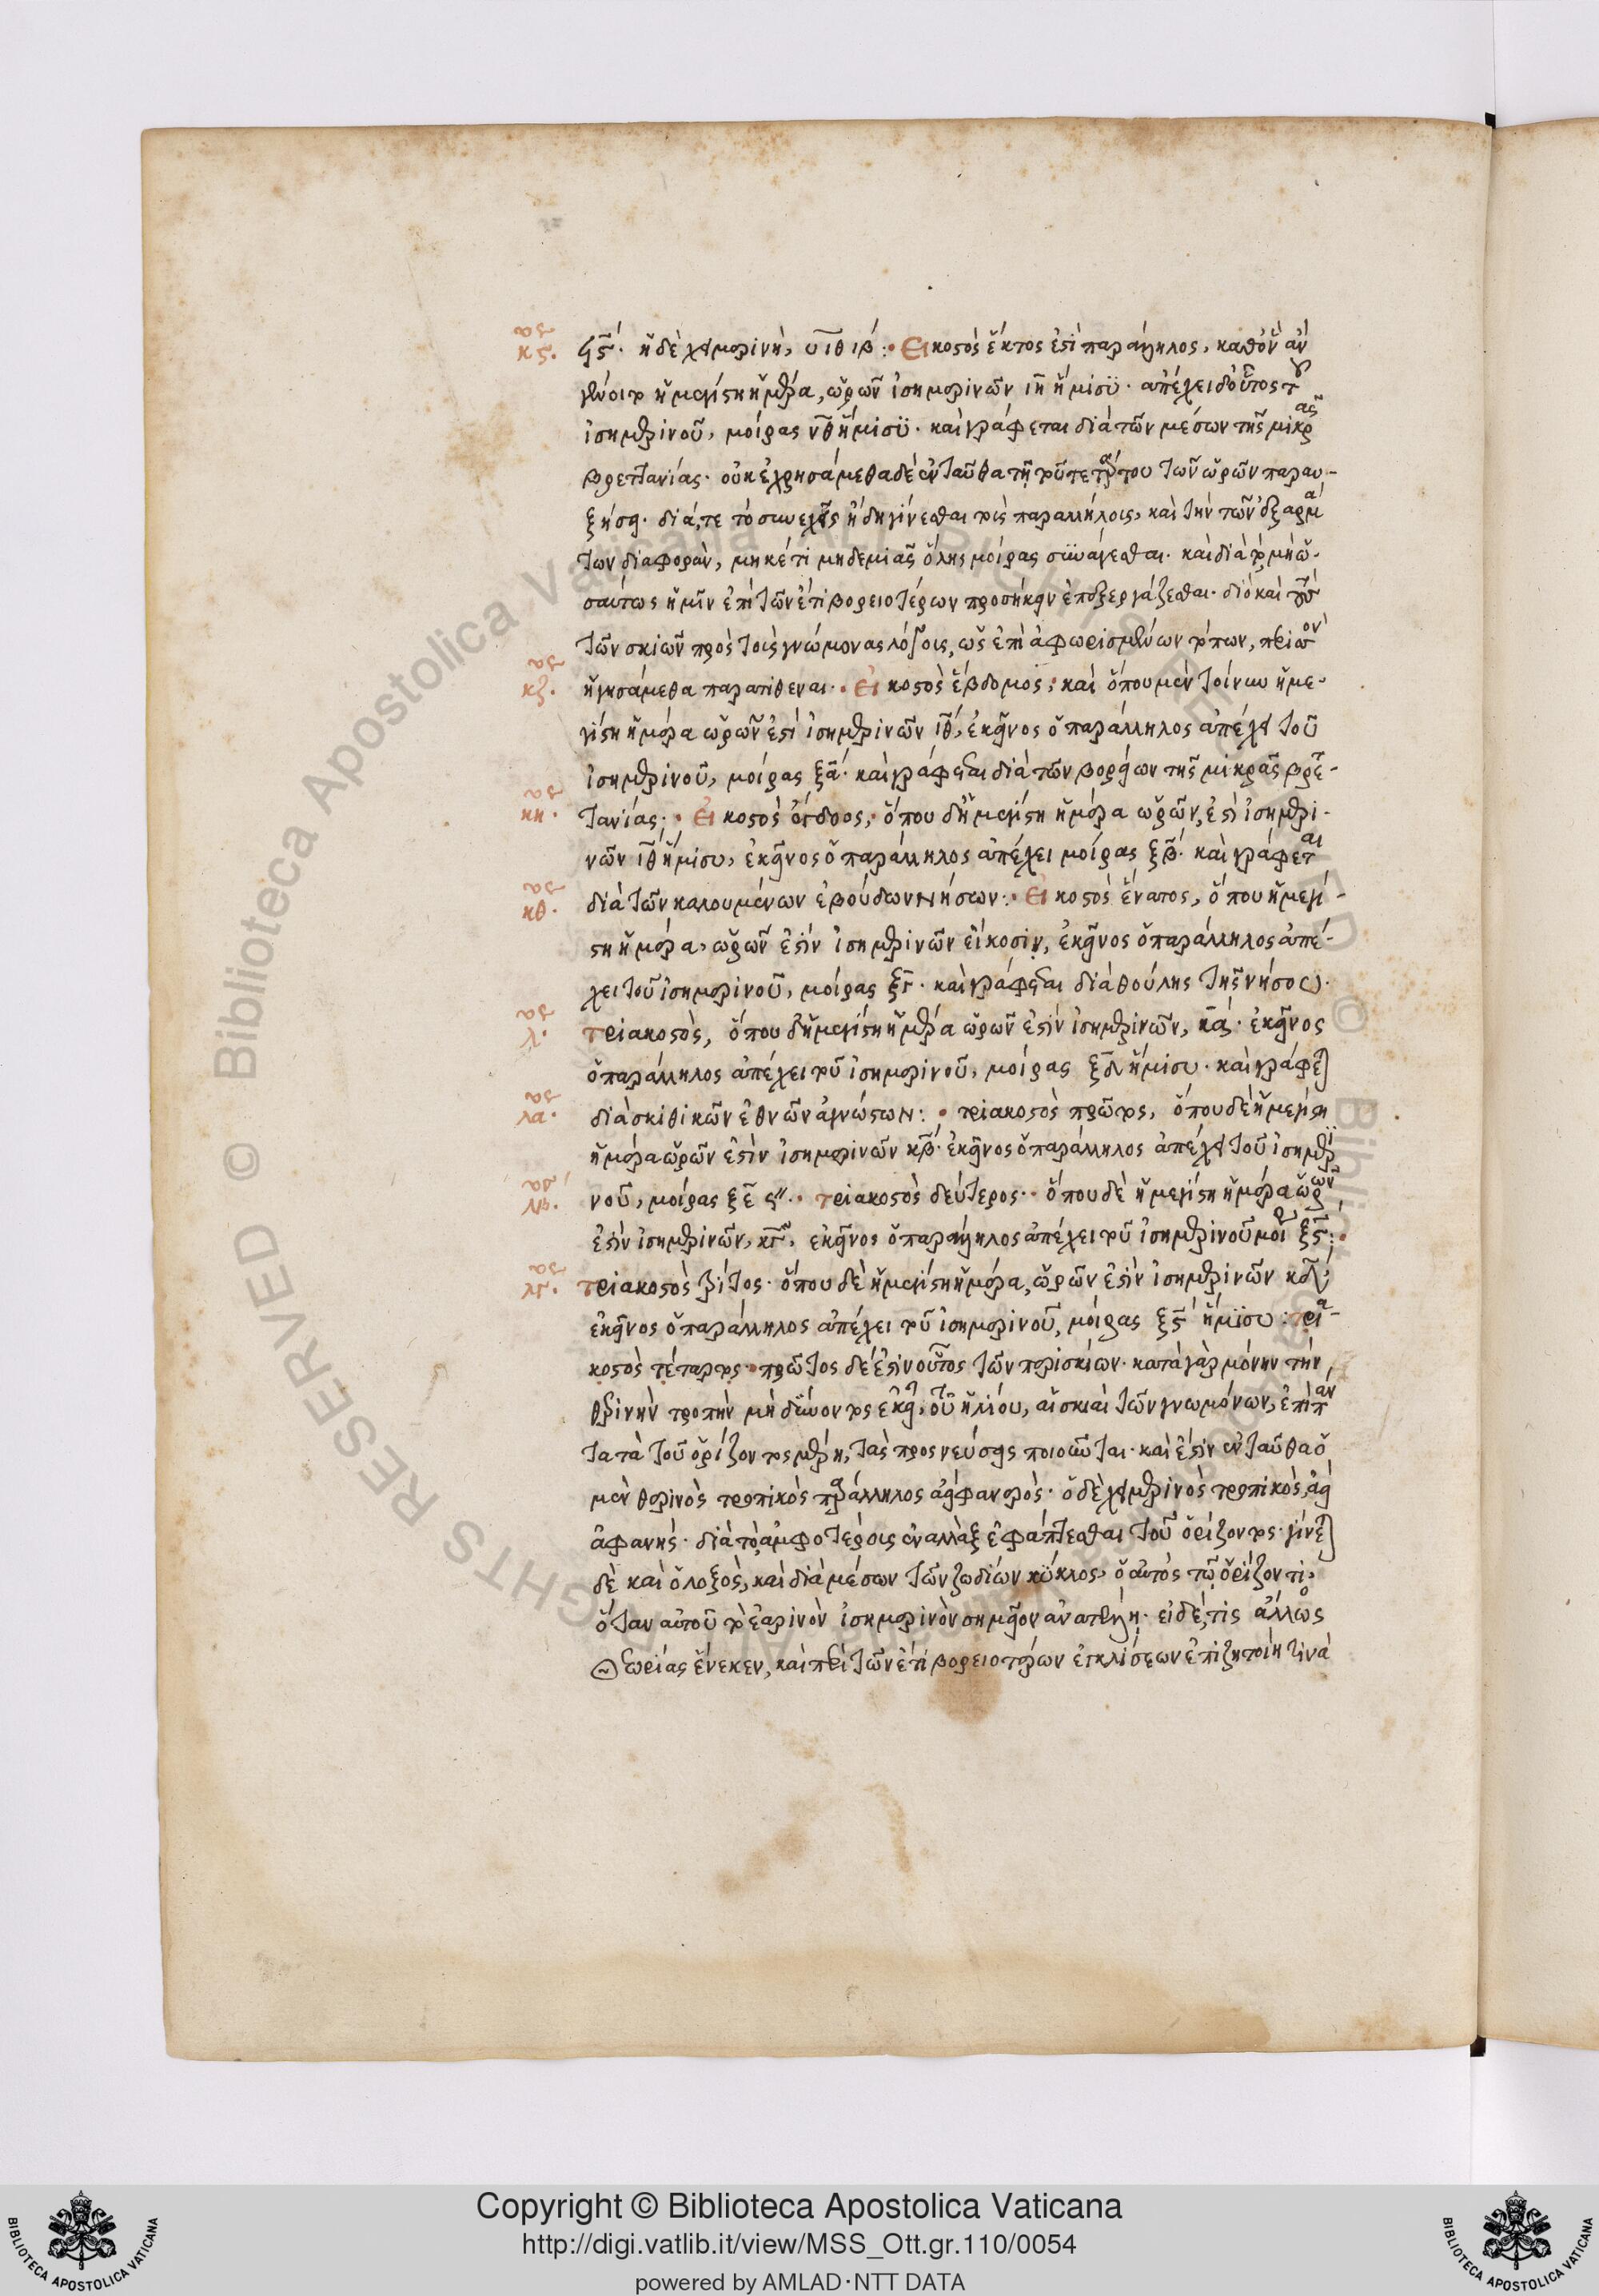 κϛ. ϟϛ΄· ἡ δὲ χειμερινὴ, υιθ ιβ΄: Εἰκοστὸς ἕκτος ἐστὶ παράλληλος, καθ' ὃν ἂν
γένοιτο ἡ μεγίστη ἡμέρα, ὡρῶν ἰσημερινῶν ιη ἥμισυ· ἀπέχει δ' οὗτος τοῦ
ἰσημερινοῦ, μοίρας νθ ἥμισυ· καὶ γράφεται διὰ τῶν μέσων τῆς μικρᾶς
βρεττανίας· οὐκ ἐχρησάμεθα δὲ ἐνταῦθα τῇ τοῦ τετάρτου τῶν ὡρῶν παραυ-
ξήσει· διά, τε τὸ συνεχεῖς ἤδη γίνεσθαι τοὺς παραλλήλους, καὶ τὴν τῶν ἐξαρμά
των διαφορὰν, μηκέτι μηδεμιᾶς ὅλης μοίρας συνάγεσθαι· καὶ διὰ τὸ μὴ ὡ-
σαύτως ἡμῖν ἐπὶ τῶν ἔτι βορειοτέρων προσήκειν ἐπεξεργάζεσθαι· διὸ καὶ τοὺς
τῶν σκιῶν πρὸς τοὺς γνώμονας λόγους, ὡς ἐπὶ ἀφωρισμένων τόπων, περισσὸν
κζ. ἡγησάμεθα παρατιθέναι· Εἰκοστὸς ἕβδομος; καὶ ὅπου μὲν τοίνυν ἡ με-
γίστη ἡμέρα ὡρῶν ἐστὶ ἰσημερινῶν ιθ, ἐκεῖνος ὁ παράλληλος ἀπέχει τοῦ
ἰσημερινοῦ, μοίρας ξα· καὶ γράφεται διὰ τῶν βορείων τῆς μικρᾶς βρετ-
κη. τανίας· Εἰκοστὸς ὄγδοος, ὅπου δ' ἡ μεγίστη ἡμέρα ὡρῶν, ἐστὶ ἰσημερι-
νῶν ιθ ἥμισυ, ἐκεῖνος ὁ παράλληλος ἀπέχει μοίρας ξβ· καὶ γράφεται
κθ. διὰ τῶν καλουμένων ἐβούδων νήσων: Εἰκοστὸς ἔνατος, ὅπου ἡ μεγί-
στη ἡμέρα, ὡρῶν ἐστὶν ἰσημερινῶν εἴκοσιν, ἐκεῖνος ὁ παράλληλος ἀπέ-
χει τοῦ ἰσημερινοῦ, μοίρας ξγ· καὶ γράφεται διὰ θούλης τῆς νήσου·
λ. τριακοστὸς, ὅπου δ' ἡ μεγίστη ἡμέρα ὡρῶν ἐστὶν ἰσημερινῶν, κα· ἐκεῖνος
ὁ παράλληλος ἀπέχει τοῦ ἰσημερινοῦ, μοίρας ξδ ἥμισυ· καὶ γράφεται
λα. διὰ σκιθικῶν ἐθνῶν ἀγνώστων: τριακοστὸς πρῶτος, ὅπου δὲ ἡ μεγίστη
ἡμέρα ὡρῶν ἐστὶν ἰσημερινῶν κβ· ἐκεῖνος ὁ παράλληλος ἀπέχει τοῦ ἰσημερι
λβ. νοῦ, μοίρας ξε ϛ״· τριακοστὸς δεύτερος· ὅπου δὲ ἡ μεγίστη ἡμέρα ὡρῶν
ἐστὶν ἰσημερινῶν, κγ, ἐκεῖνος ὁ παράλληλος ἀπέχει τοῦ ἰσημερινοῦ μοίρας ξϛ:
λγ. τριακοστὸς τρίτος· ὅπου δὲ ἡ μεγίστη ἡμέρα, ὡρῶν ἐστὶν ἰσημερινῶν κδ;
ἐκεῖνος ὁ παράλληλος ἀπέχει τοῦ ἰσημερινοῦ, μοίρας ξϛ ἥμισυ: τρια-
κοστὸς τέταρτος· πρῶτος δέ ἐστιν οὗτος τῶν περισκίων· κατὰ γὰρ μόνην τὴν
θερινὴν τροπὴν μὴ δύνοντος ἐκεῖ, τοῦ ἡλίου, αἱ σκιαὶ τῶν γνωμόνων, ἐπὶ πάν
τα τὰ τοῦ ὁρίζοντος μέρη, τὰς προσνεύσεις ποιοῦνται· καὶ ἐστὶν ἐνταῦθα ὁ
μὲν θερινὸς τροπικὸς παράλληλος ἀειφανερός· ὁ δὲ χειμερινὸς τροπικὸς, ἀεὶ
ἀφανής· διὰ τὸ, ἀμφοτέρους ἐναλλὰξ ἐφάπτεσθαι τοῦ ὁρίζοντος· γίνεται
δὲ καὶ ὁ λοξὸς, καὶ διὰ μέσων τῶν ζωδίων κύκλος, ὁ αὐτὸς τῷ ὁρίζοντι,
ὅταν αὐτοῦ τὸ ἐαρινὸν ἰσημερινὸν σημεῖον ἀνατέλλῃ· εἰ δέ, τις ἄλλως
θεωρίας ἕνεκεν, καὶ περὶ τῶν ἔτι βορειοτέρων ἐγκλίσεων ἐπιζητοίη τινὰ
Copyright © Biblioteca Apostolica Vaticana
http://digi.vatlib.it/view/MSS_Ott.gr.110/0054
powered by AMLAD·NTT DATA